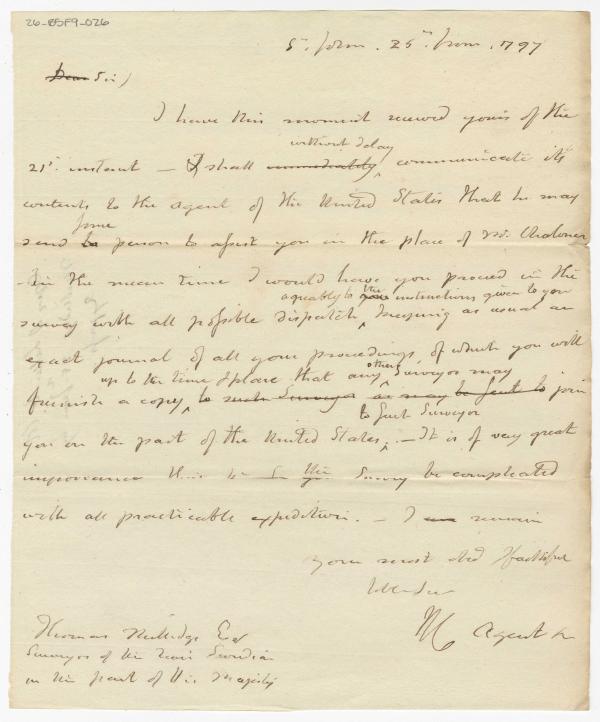 26-BSF9-026
St. John 25th. 1797
Dear Sir)
I have this moment received yours of the
without delay
21st. instant — I shall immediately communicate its
contents to the Agent of the United States that he may
some
send to person to assist you in the place of Mr. Chaloner
— in the mean time I would have you proceed in the
agreably to the your instructions given to you
survey with all possible Dispatch, keeping as usual an
exact journal of all your proceedings, of which you will
up to the time & place that any other Surveyor may
furnish a copy, to such Surveyor as may be sent to join
to such Surveyor
you on the part of the United States. — It is of very great
importance this the Survey be compleated
with all practicable expedition. — I am remain
your most obd & faithful
Agent &c
Thomas Esqr
Surveyor of the
on the part of His Majesty